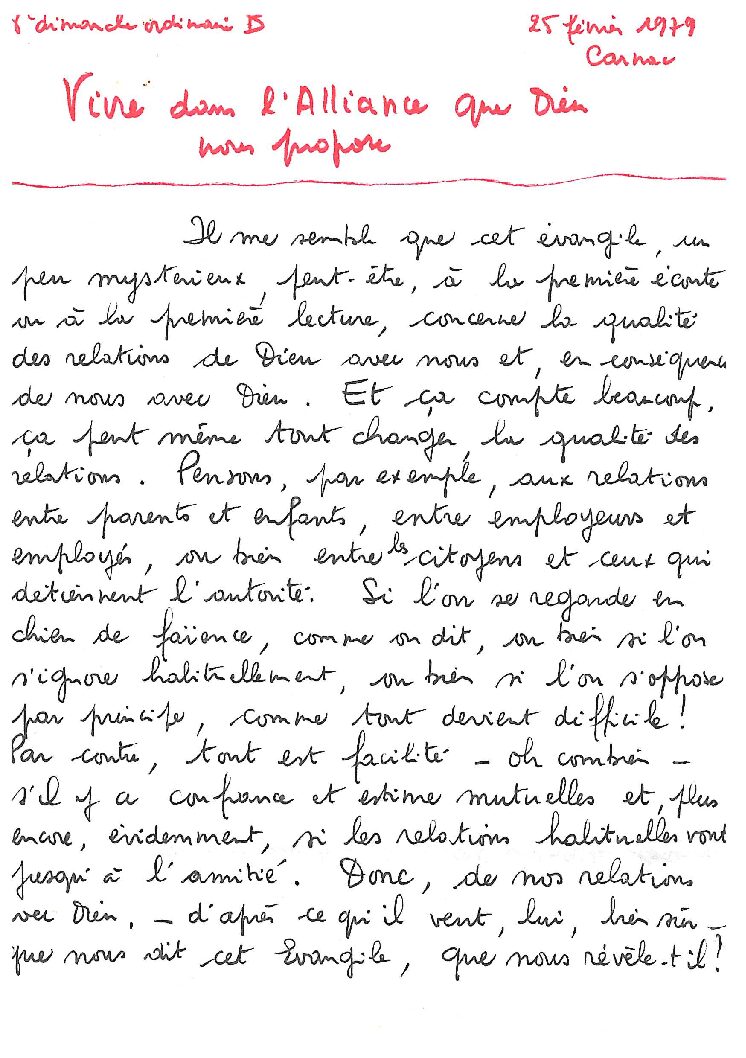 8e dimanche ordinaire B
25 février 1979
Carnac
Vivre dans l'Alliance que Dieu
nous propose
Il me semble que cet évangile, un
peu mystérieux, peut-être, à la première écoute
ou à la première lecture, concerne la qualité
des relations de Dieu avec nous et, en conséquence
de nous avec Dieu. Et ça compte beaucoup,
ça peut même tout changer, la qualité des
relations. Pensons, par exemple, aux relations
entre parents et enfants, entre employeurs et
employés, ou bien entre les citoyens et ceux qui
détiennent l'autorité. Si l'on se regarde en
chien de faïence, comme on dit, ou bien si l'on
s'ignore habituellement, ou bien si l'on s'oppose
par principe, comme tout devient difficile !
Par contre, tout est facilité – oh combien –
s'il y a confiance et estime mutuelles et, plus
encore, évidemment, si les relations habituelles vont
jusqu'à l'amitié. Donc, de nos relations
avec Dieu, – d'après ce qu'il veut, lui, bien sûr –
que nous dit cet Evangile, que nous révèle-t-il ?